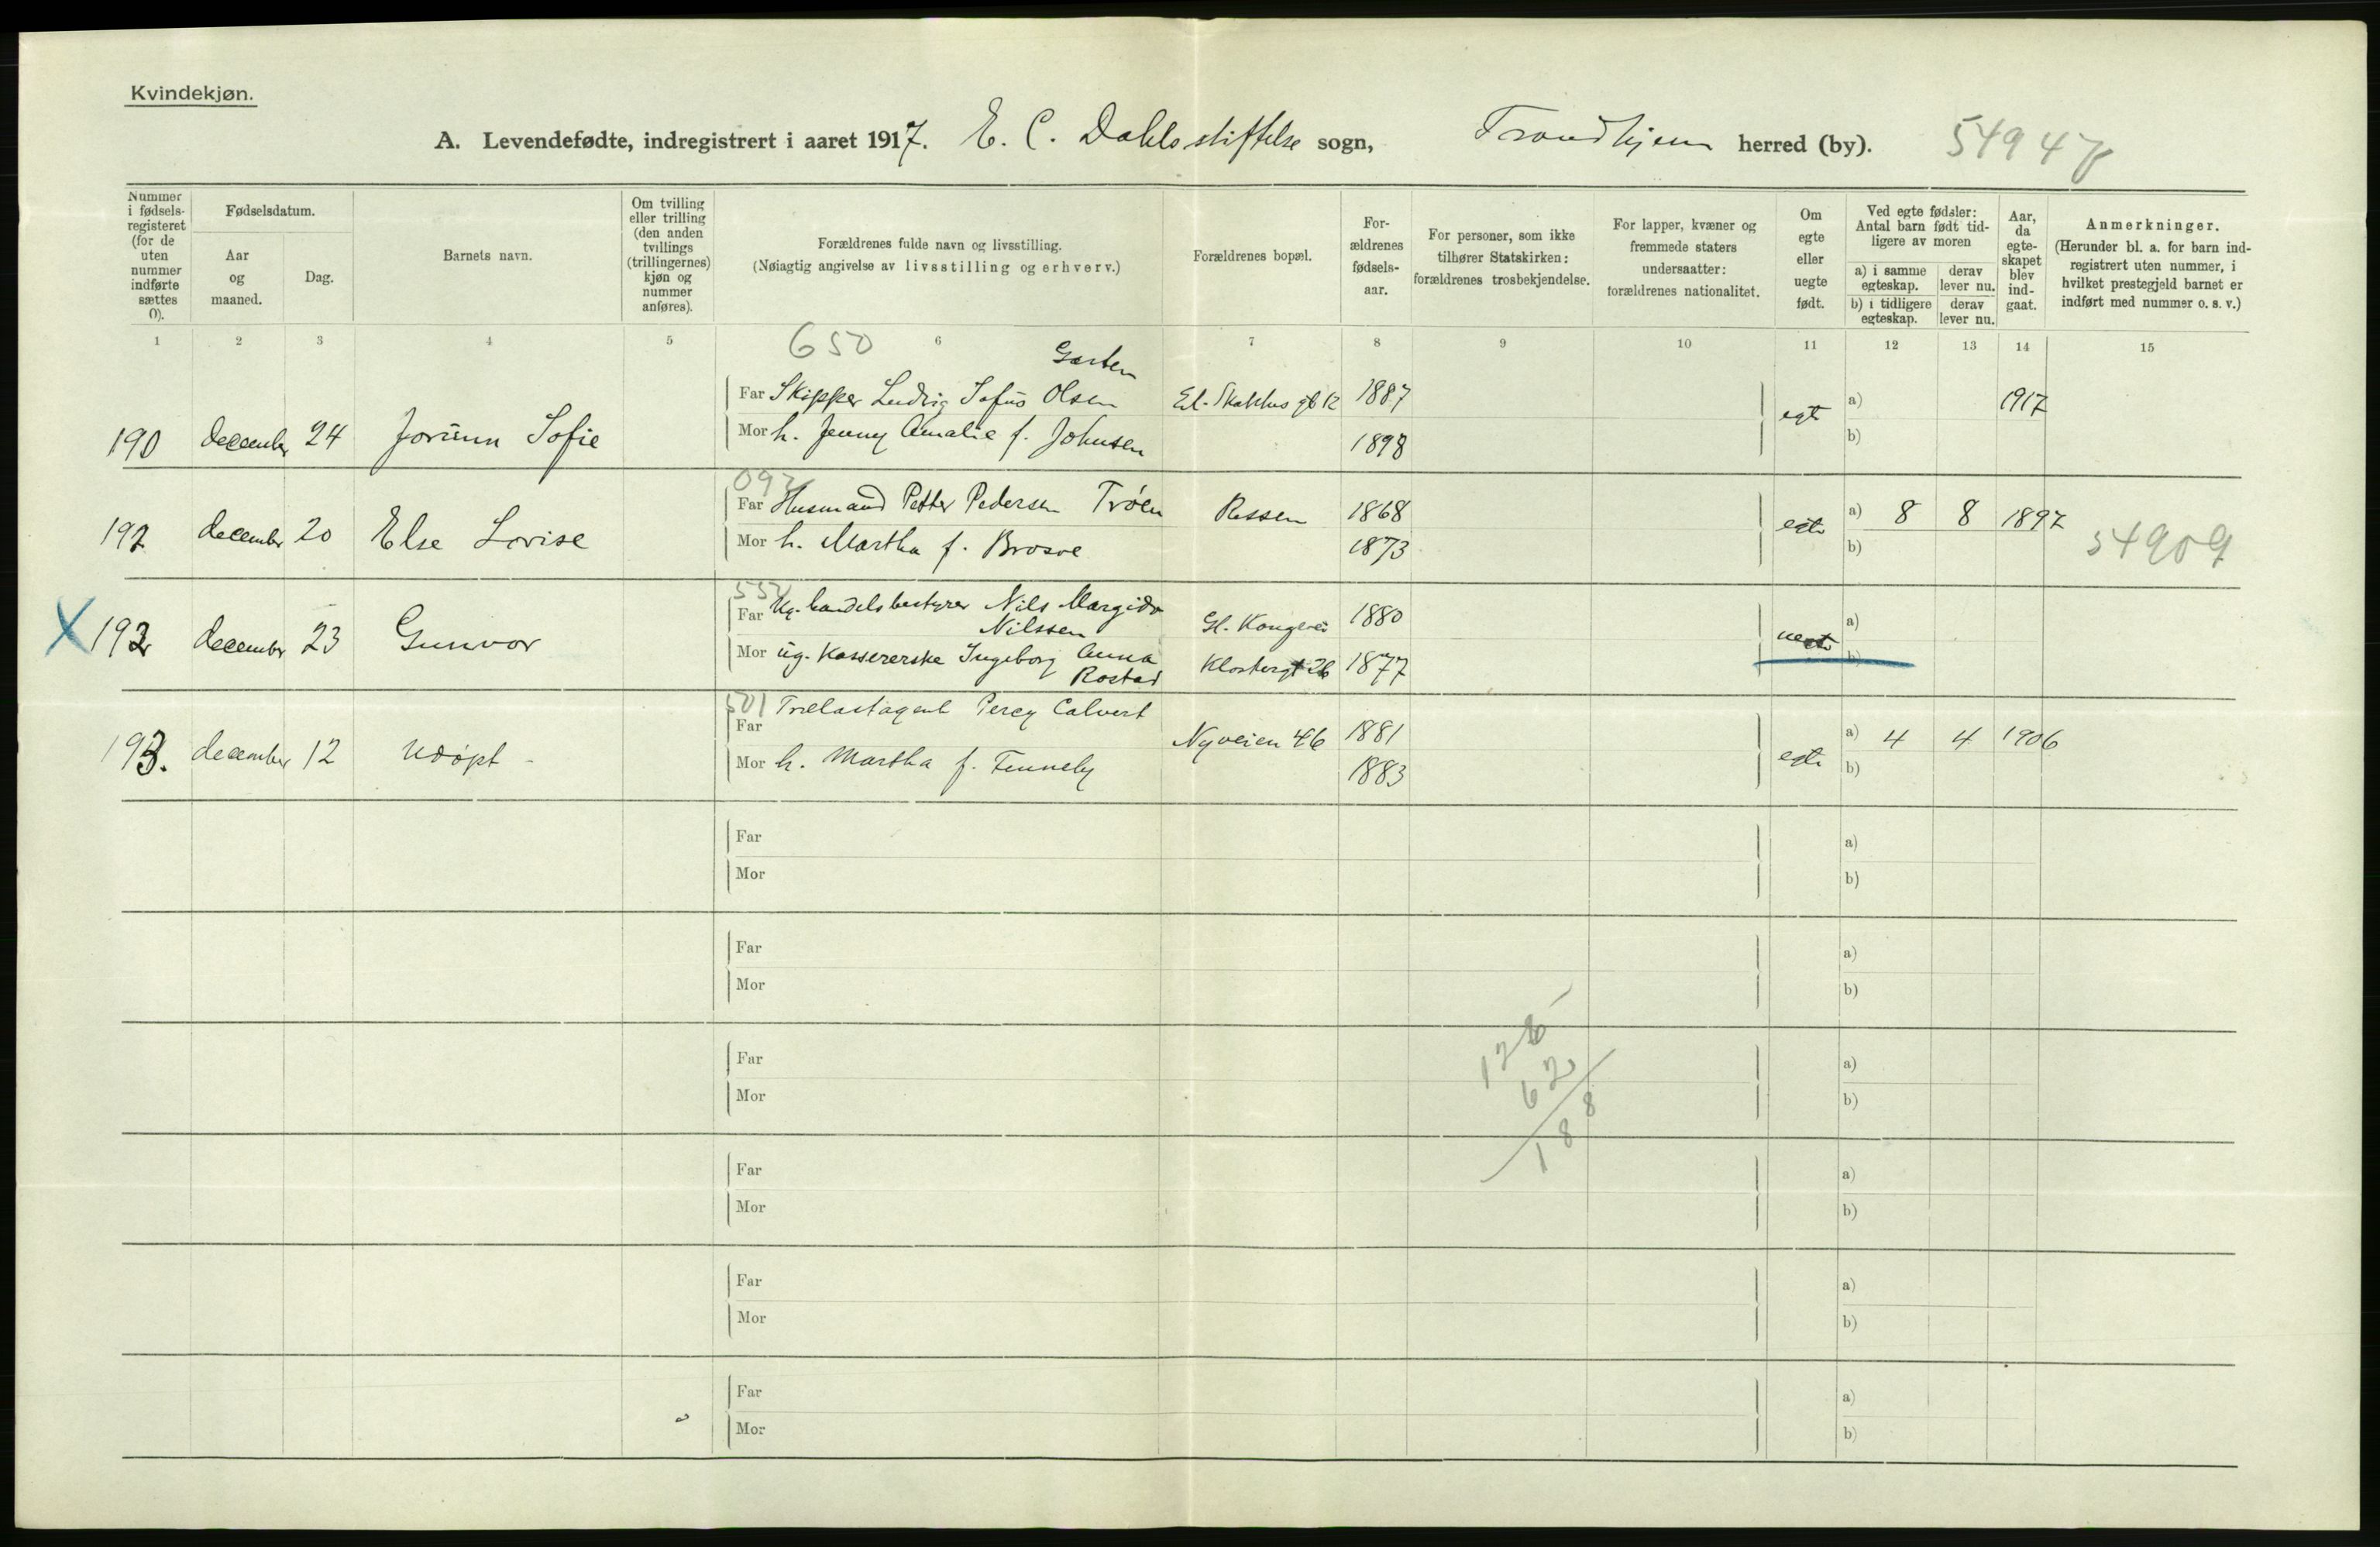 Kvindekjøn.
A. Levendefødte, indregistrert i aaret 1917. E. C. Dahls stiftelse sogn, Trondhjem herred (by). 54947
Nummer i fødselsregisteret (for de uten nummer indførte sættes 0).
Fødselsdatum.
Aar og maaned.
Dag.
Barnets navn.
Om tvilling eller trilling (den anden tvillings (trillingernes) kjøn og nummer anføres).
Forældrenes fulde navn og livsstilling.
(Nøiagtig angivelse av livsstilling og erhverv.)
Forældrenes bopæl.
Forældrenes fødselsaar.
For personer, som ikke tilhører Statskirken: forældrenes trosbekjendelse.
For lapper, kvæner og fremmede staters undersaatter: forældrenes nationalitet.
Om egte eller uegte født.
Ved egte fødsler: Antal barn født tidligere av moren
a) i samme egteskap. derav lever nu.
b) i tidligere egteskap. derav lever nu.
Aar, da egteskapet blev indgaat.
Anmerkninger.
(Herunder bl. a. for barn indregistrert uten nummer, i hvilket prestegjeld barnet er indført med nummer o. s. v.)
1 2 3 4 5 6 7 8 9 10 11 12 13 14 15
650
Garten
190 december 24 Jorunn Sofie Far Skipper Ludvig Sofus Olsen 1887 egte a) 1917
Mor h. Jenny Amalie f. Johnsen 1898 b)
192 december 20 Else Lovise Far Husmand Petter Pedersen Trøen Rissen 1868 egte a) 8 8 1897
Mor h. Martha f. Brosve 1873 b) 54909
X 192 december 23 Gunvor Far Ug. handelsbestyrer Nils Margido Nilssen Gl. Kongevei 1880 uegte a)
Mor ug. Kassererske Ingeborg Anna Rostad Klostergt 26 1877 b)
501
193. december 12 Udøpt - Far Trælastagent Percy Calvert Nyveien 46 1881 egte a) 4 4 1906
Mor h. Martha f. Fennely 1883 b)
Far a)
Mor b)
Far a)
Mor b)
126
Far a)
62
Mor b)
188
Far a)
Mor b)
Far a)
Mor b)
Far a)
Mor b)